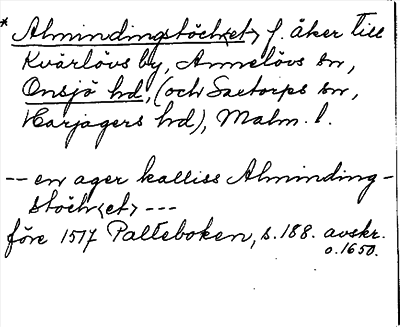 * Almindingstöch<et> f. åker till
Kvärlövs by, Annelövs sn,
Onsjö hd, (och Saxtorps sn,
Harjagers hd), Malm. l.
-- en ager kalliss Alminding-
stöch<et> ---
före 1517 Palteboken, s. 188. avskr.
o. 1650.